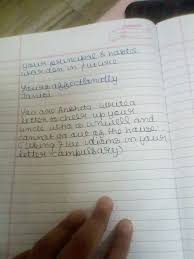 your principal & hostel
warden in future
Yours affectionally
You are Ankita write a
letter to cheer up your
uncle who is unwell and
cannot go out of the house
(using 7 idioms in your
letter compulsary)